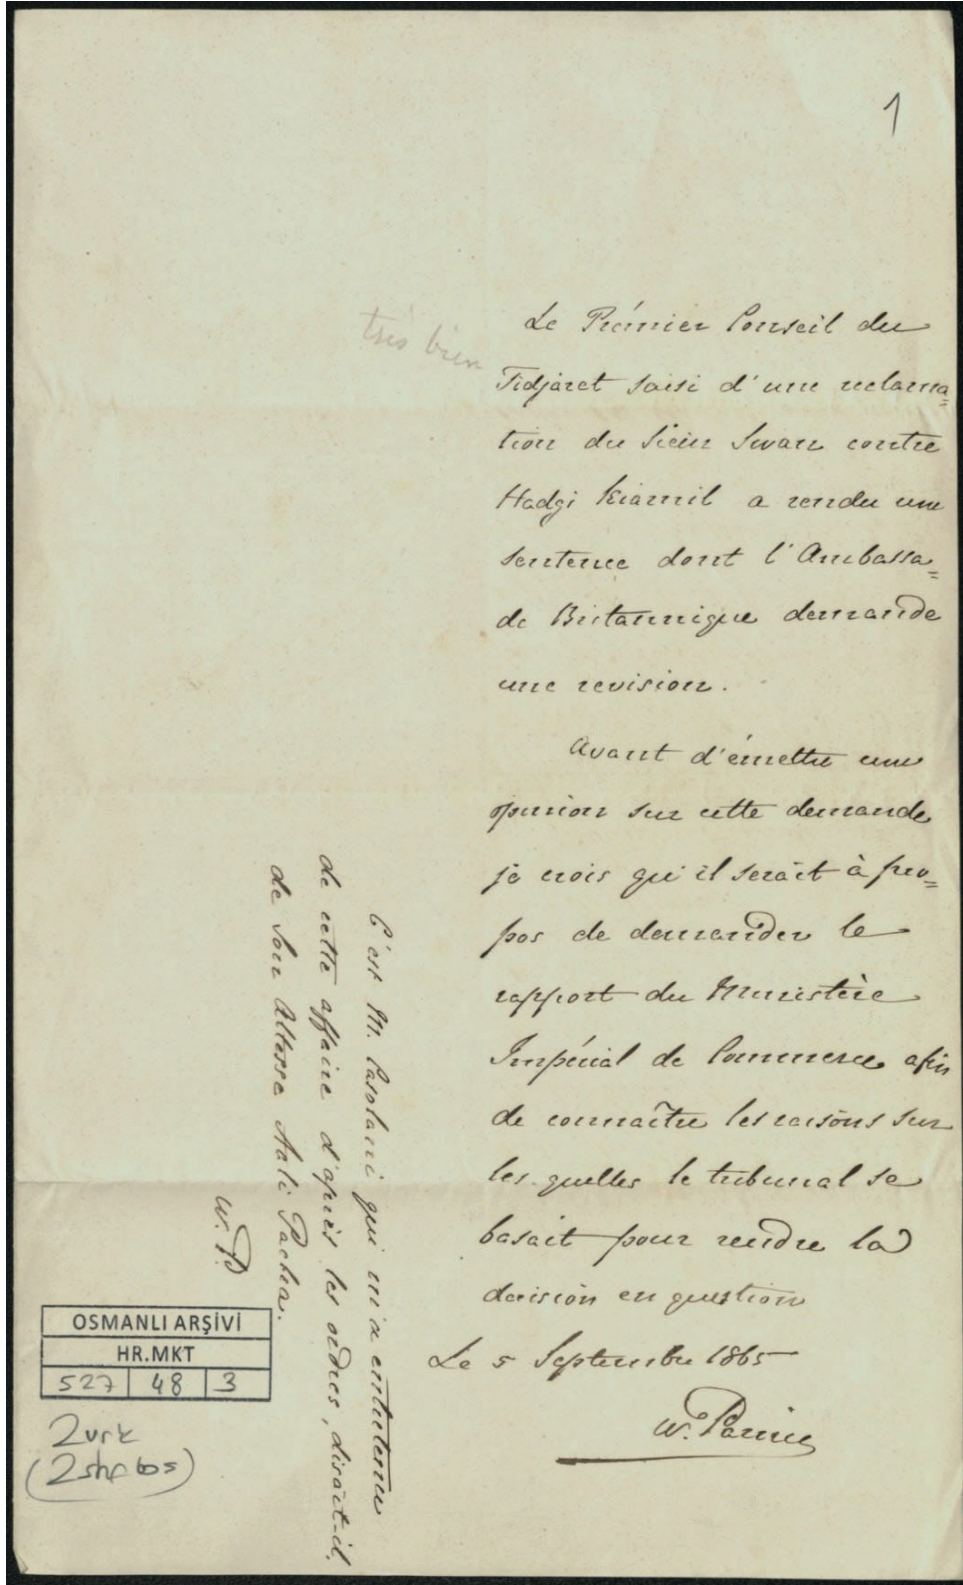 1
très bien
Le Prémier Conseil du
Tidjaret saisi d'une reclama=
tion du Sieur Swan contre
Hadgi Kiamil a rendu une
sentence dont l'Ambassa=
de Britannique demande
une revision.
Avant d'émettre une
opinion sur cette demande
je crois qu'il serait à pro=
pos de demander le
rapport du Ministère
Impérial de Commerce afin
de connaître les raisons sur
les quelles le tribunal se
basait pour rendre la
décision en question
Le 5 Septembre 1865
W.
C'est M. Casolani qui m'a entretenu
de cette affaire d'après les ordres, disait-il,
de Son Altesse Aali Pacha.
W. P.
OSMANLI ARŞİVİ
HR.MKT
527 48 3
2 vrk
(2 shf boş)